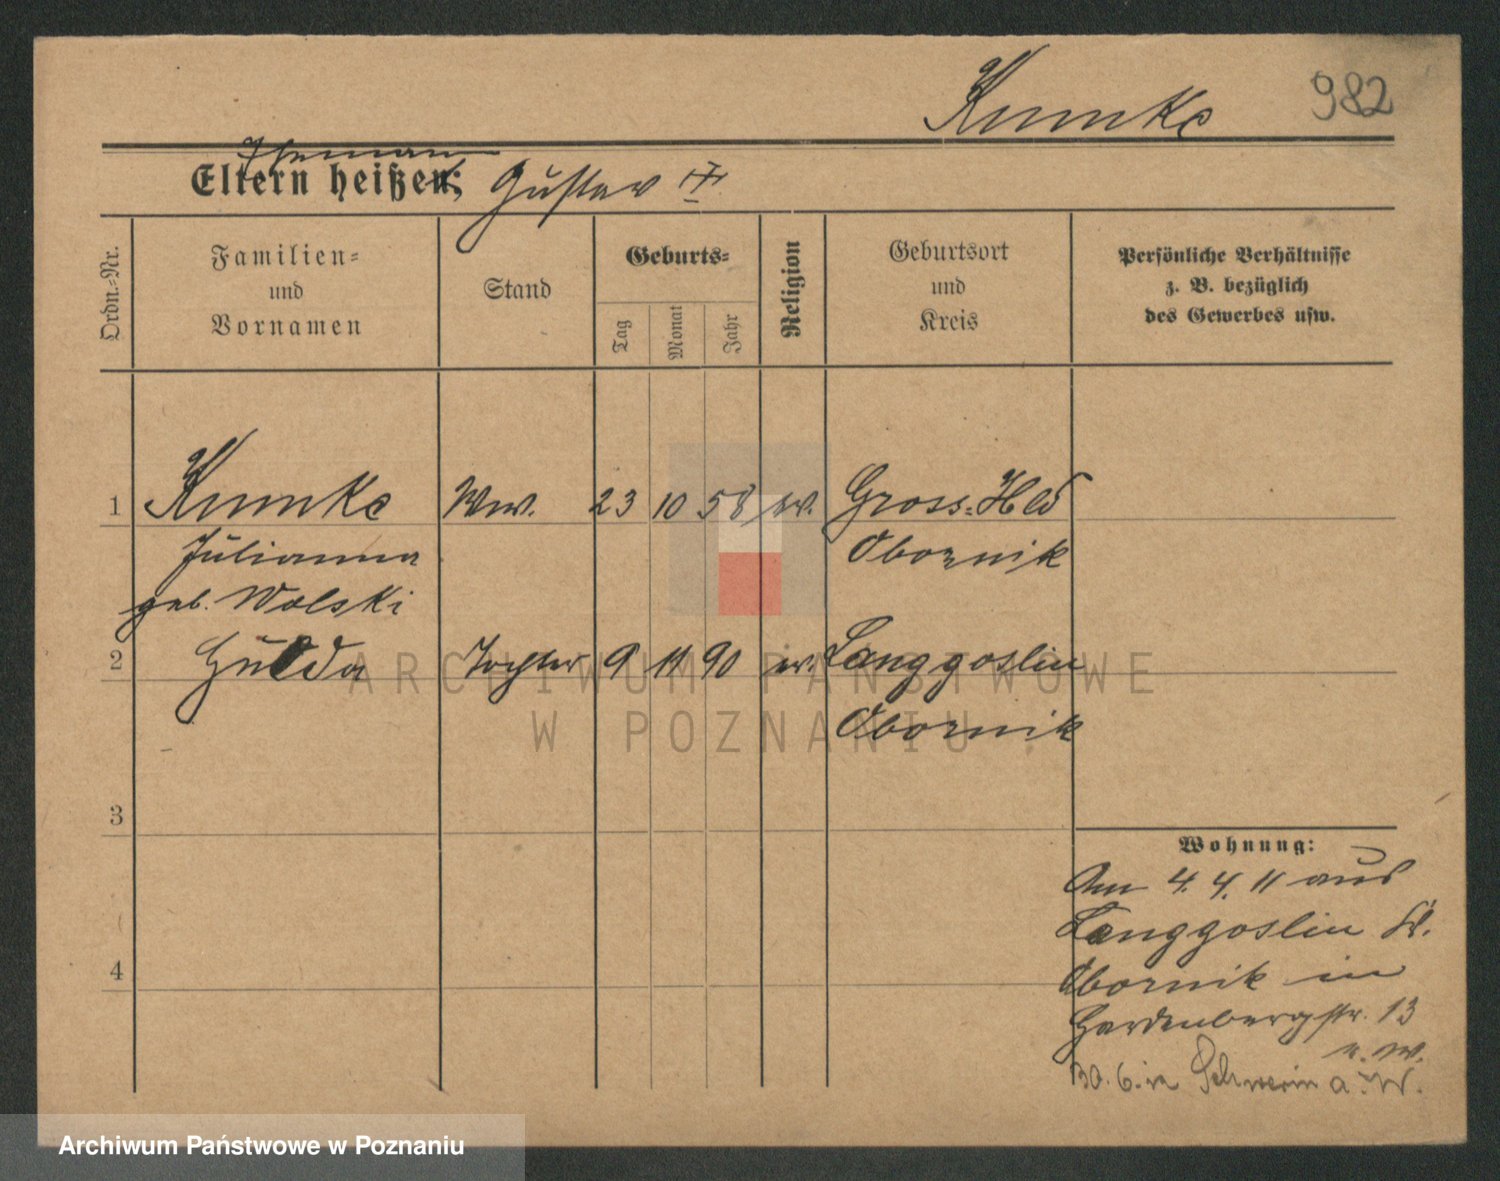 Kumke 982
Ehemann
Eltern heißen: Gustav †
Ordn.-Nr.
Familien-
und
Vornamen
Stand
Geburts-
Tag
Monat
Jahr
Religion
Geburtsort
und
Kreis
Persönliche Verhältnisse
z. B. bezüglich
des Gewerbes usw.
1 Kumke Ww. 23 10 58 ev. Gross-Hld
Julianna Obornik
geb. Wolski
2 Hulda Tochter 9 11 90 ev. Langgoslin
Obornik
3
4
Wohnung:
Am 4. 4. 11 aus
Langgoslin Kr.
Obornik in
Hardenbergstr. 13
30. 6. in Schwerin a. W.
ARCHIWUM PAŃSTWOWE
W POZNANIU
Archiwum Państwowe w Poznaniu